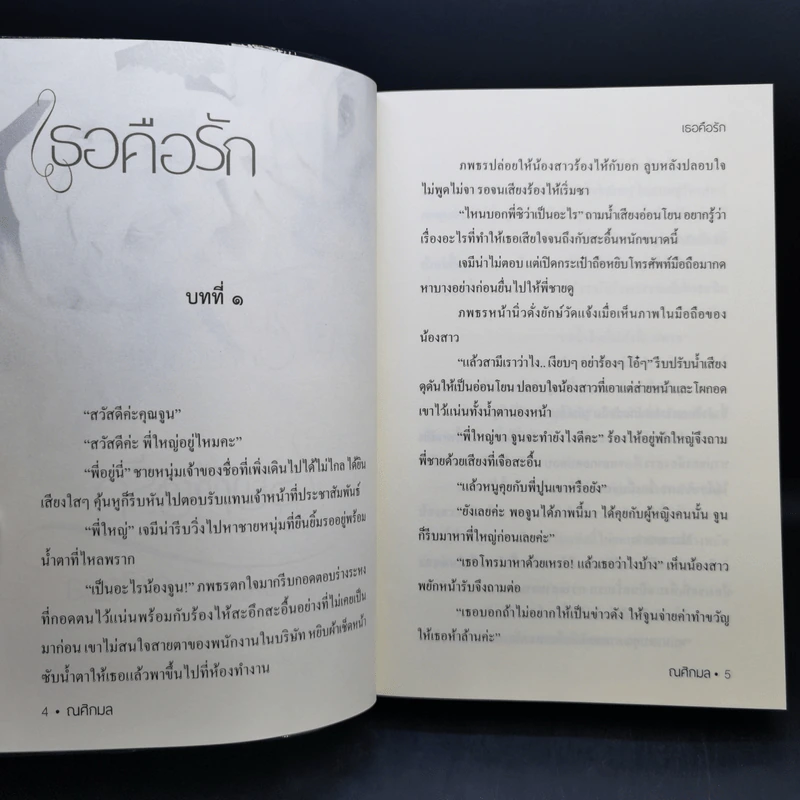 เธอคือรัก
บทที่ ๑
“สวัสดีค่ะคุณจูน”
“สวัสดีค่ะ พี่ใหญ่อยู่ไหมคะ”
“พี่อยู่นี่” ชายหนุ่มเจ้าของชื่อที่เพิ่งเดินไปได้ไม่ไกล ได้ยิน
เสียงใสๆ คุ้นหูก็รีบหันไปตอบรับแทนเจ้าหน้าที่ประชาสัมพันธ์
“พี่ใหญ่” เจมีน่ารีบวิ่งไปหาชายหนุ่มที่ยืนยิ้มรออยู่พร้อม
น้ำตาที่ไหลพราก
“เป็นอะไรน้องจูน!” ภพธรตกใจมากรีบกอดตอบร่างระหง
ที่กอดตนไว้แน่นพร้อมกับร้องไห้สะอึกสะอื้นอย่างที่ไม่เคยเป็น
มาก่อน เขาไม่สนใจสายตาของพนักงานในบริษัท หยิบผ้าเช็ดหน้า
ซับน้ำตาให้เธอแล้วพาขึ้นไปที่ห้องทำงาน
4 • ณศิกมล
เธอคือรัก
ภพธรปล่อยให้น้องสาวร้องไห้กับอก ลูบหลังปลอบใจ
ไม่พูดไม่จา รอจนเสียงร้องไห้เริ่มซา
“ไหนบอกพี่ซิว่าเป็นอะไร” ถามน้ำเสียงอ่อนโยน อยากรู้ว่า
เรื่องอะไรที่ทำให้เธอเสียใจจนถึงกับสะอื้นหนักขนาดนี้
เจมีน่าไม่ตอบ แต่เปิดกระเป๋าถือหยิบโทรศัพท์มือถือมากด
หาบางอย่างก่อนยื่นไปให้พี่ชายดู
ภพธรหน้านิ่วดั่งยักษ์วัดแจ้งเมื่อเห็นภาพในมือถือของ
น้องสาว
“แล้วสามีเราว่าไง.. เงียบๆ อย่าร้องๆ โอ๋ๆ” รีบปรับน้ำเสียง
ดุดันให้เป็นอ่อนโยน ปลอบใจน้องสาวที่เอาแต่ส่ายหน้าและโผกอด
เขาไว้แน่นทั้งน้ำตานองหน้า
“พี่ใหญ่ขา จูนจะทำยังไงดีคะ” ร้องไห้อยู่พักใหญ่จึงถาม
พี่ชายด้วยเสียงที่เจือสะอื้น
“แล้วหนูคุยกับพี่ปูนเขาหรือยัง”
“ยังเลยค่ะ พอจูนได้ภาพนี้มา ได้คุยกับผู้หญิงคนนั้น จูน
ก็รีบมาหาพี่ใหญ่ก่อนเลยค่ะ”
“เธอโทรมาหาด้วยเหรอ! แล้วเธอว่าไงบ้าง” เห็นน้องสาว
พยักหน้ารับจึงถามต่อ
“เธอบอกถ้าไม่อยากให้เป็นข่าวดัง ให้จูนจ่ายค่าทำขวัญ
ให้เธอห้าล้านค่ะ”
ณศิกมล • 5